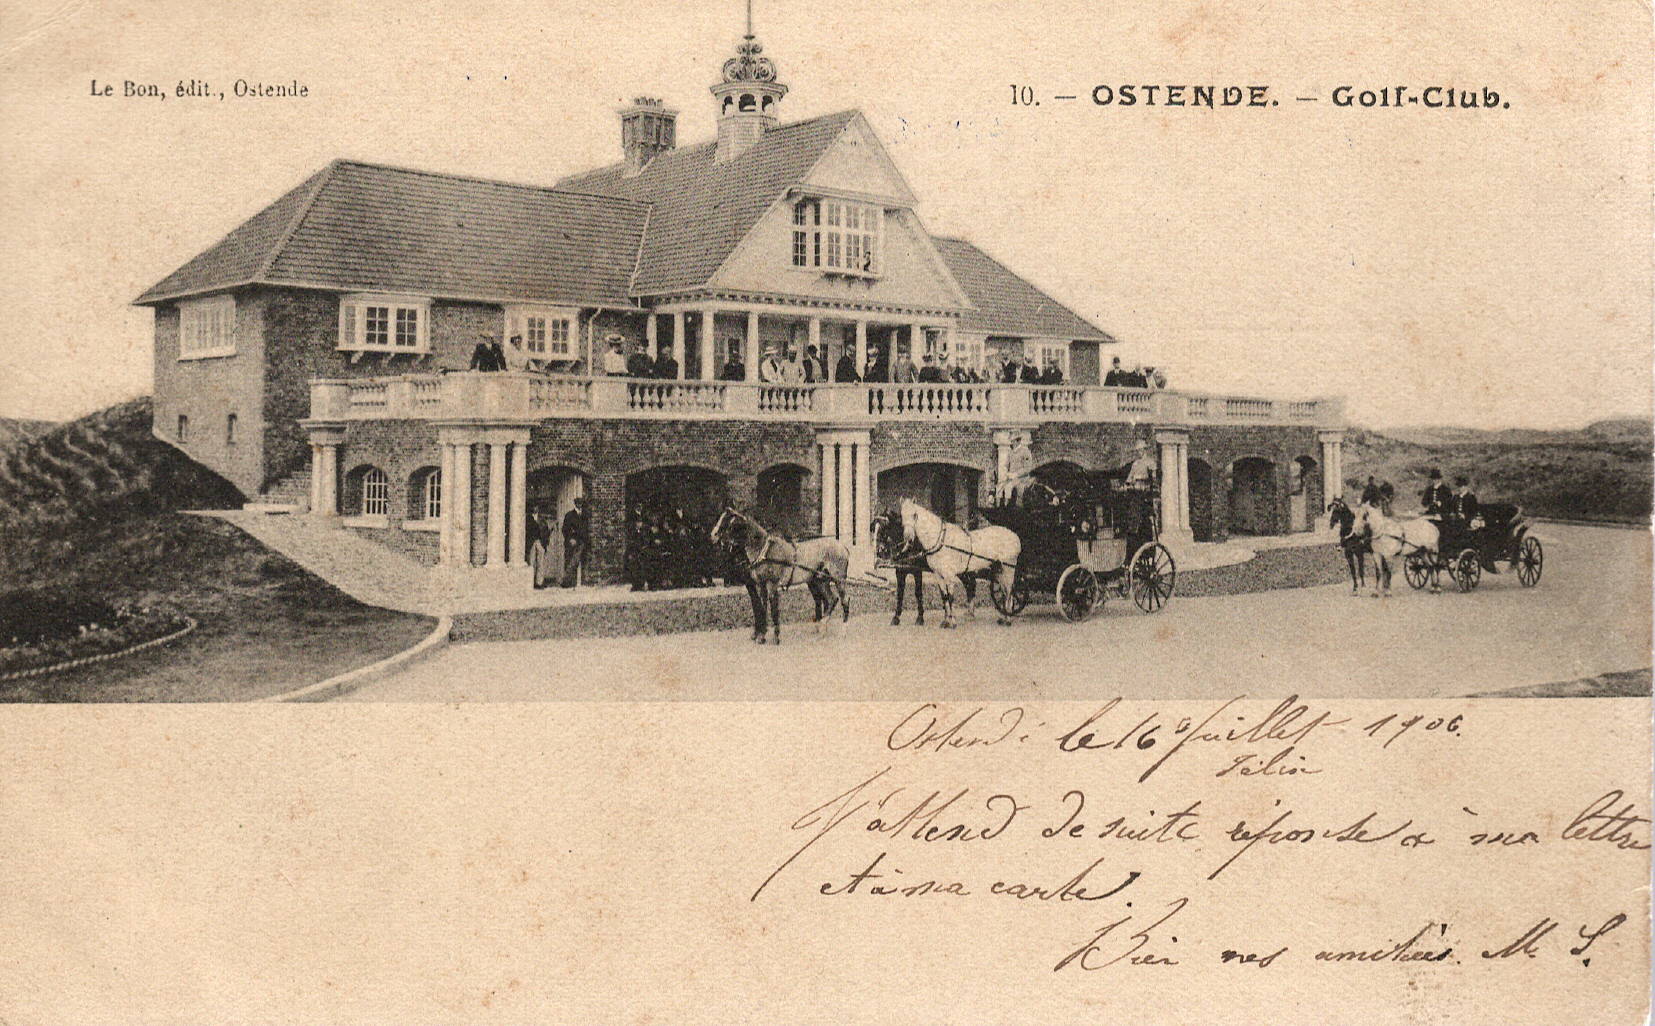 Le Bon, édit., Ostende
10. — OSTENDE. — Golf-Club.
Ostende le 16 Juillet 1906.
J'attend de suite réponse à ma lettre
et à ma carte.
Bien nos amitiés. M. S.